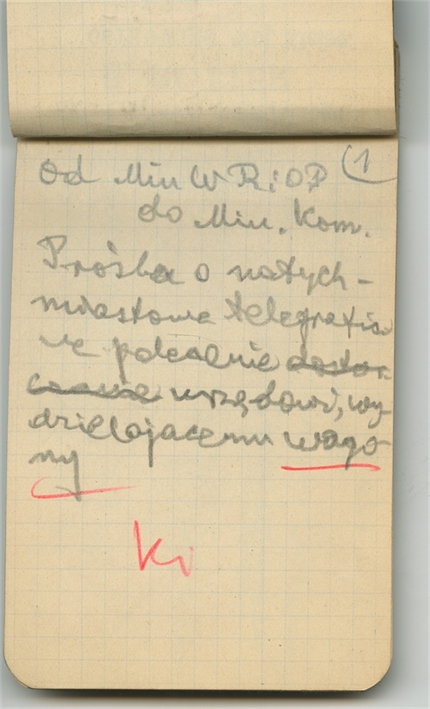 (1
Od Min W R i O P
do Min. Kom.
Prośba o natych-
miastowe telegraficz
ne polecenie dostar
czenia urzędowi, wy-
dzielającemu wago
ny
Ki